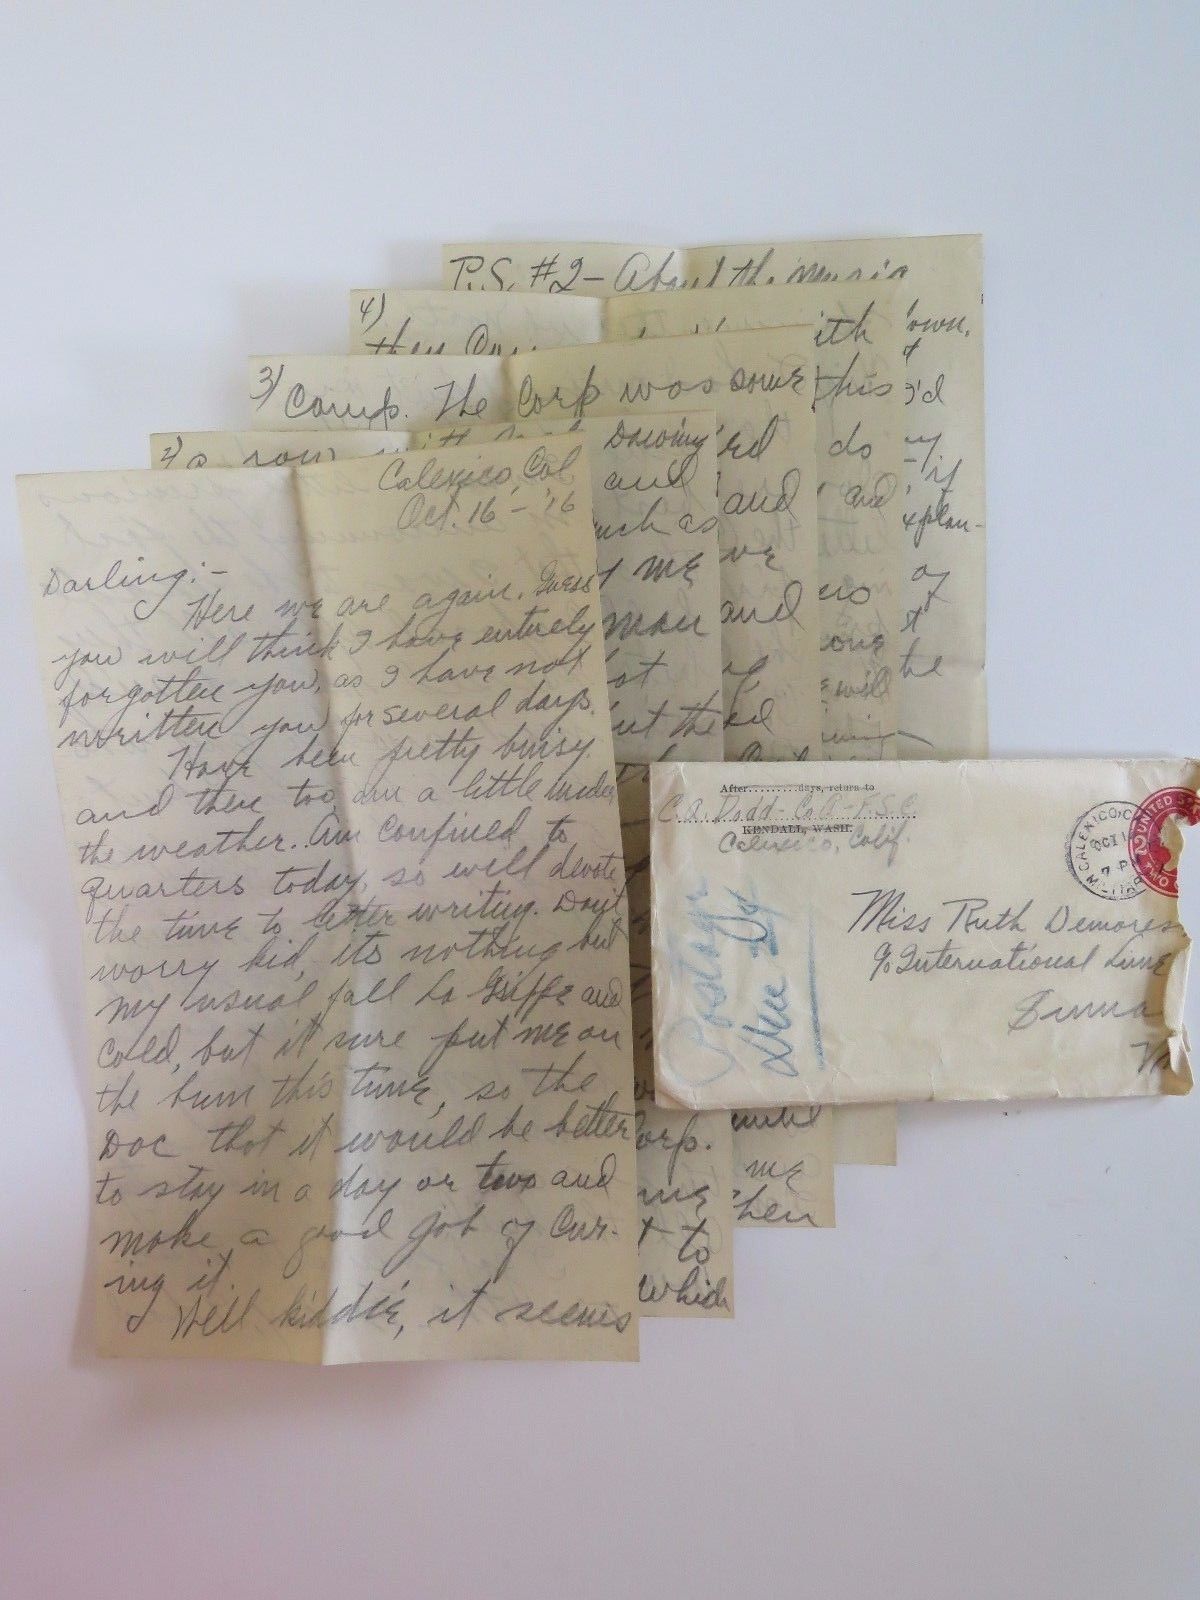 P.S. #2 – About the music
4)
they
ith
own.
3)
Camp. The Corp was some
this
'd
2)
a row with
Drawing
rd
do
and
and
and
if
explan-
uch as
ve
of
t me
and
man
one
he
ot
of
will
ut the
ed
Calexico, Cal
Oct. 16 – '16
Darling:-
Here we are again. Guess
you will think I have entirely
forgotten you, as I have not
written you for several days.
Have been pretty buisy
and then too, am a little under
the weather. Am confined to
quarters today, so will devote
the time to letter writing. Don't
worry kid, its nothing but
my usual fall La Grippe and
cold, but it sure put me on
the bum this time, so the
Doc that it would be better
to stay in a day or two and
make a good job of cur-
ing it.
Well kiddie, it seems
orp.
until
me
me
then
t to
which
After..........days, return to
C.A. Dodd – Co A – F.S.C.
KENDALL, WASH.
Calexico, Calif.
CALEXICO, C
OCT 1
7 P
MILITAR
UNITED STA
2
TWO
Postage
Due 2¢
Miss Ruth Demores
% International Lime
Suma